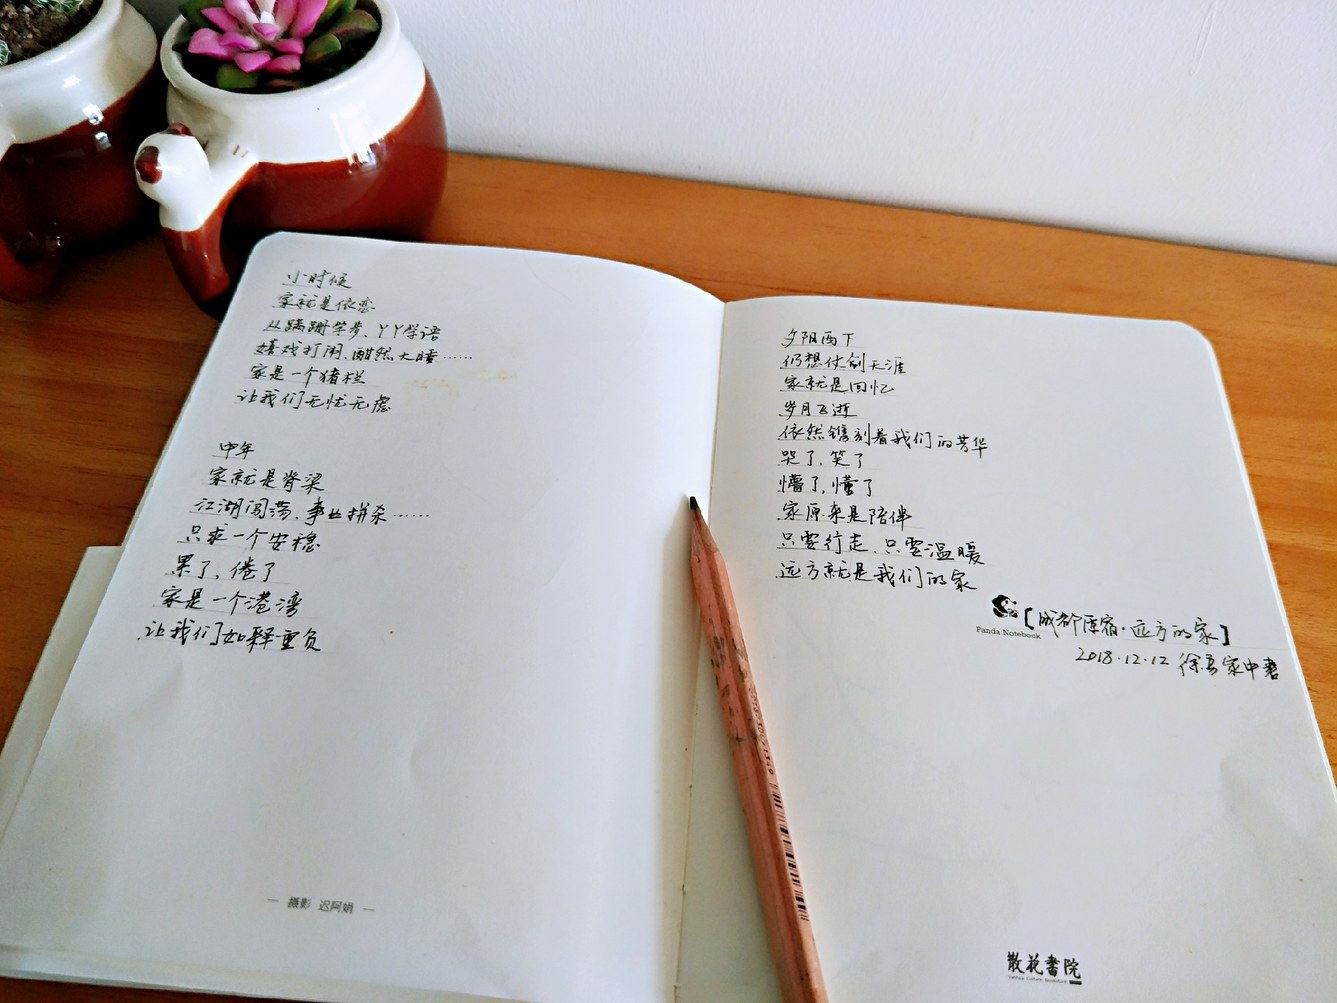 小时候
家就是依恋
从蹒跚学步、丫丫学语
嬉戏打闹、酣然大睡……
家是一个猪栏
让我们无忧无虑
中年
家就是脊梁
江湖闯荡、事业拼杀……
只求一个安稳
累了，倦了
家是一个港湾
让我们如释重负
— 摄影 迟阿娟 —
夕阳西下
仍想仗剑天涯
家就是回忆
岁月飞逝
依然镌刻着我们的芳华
哭了，笑了
懵了，懂了
家原来是陪伴
只要行走、只要温暖
远方就是我们的家
Panda Notebook
[成都原宿·远方的家]
2018.12.12 徐吾家中书
散花書院